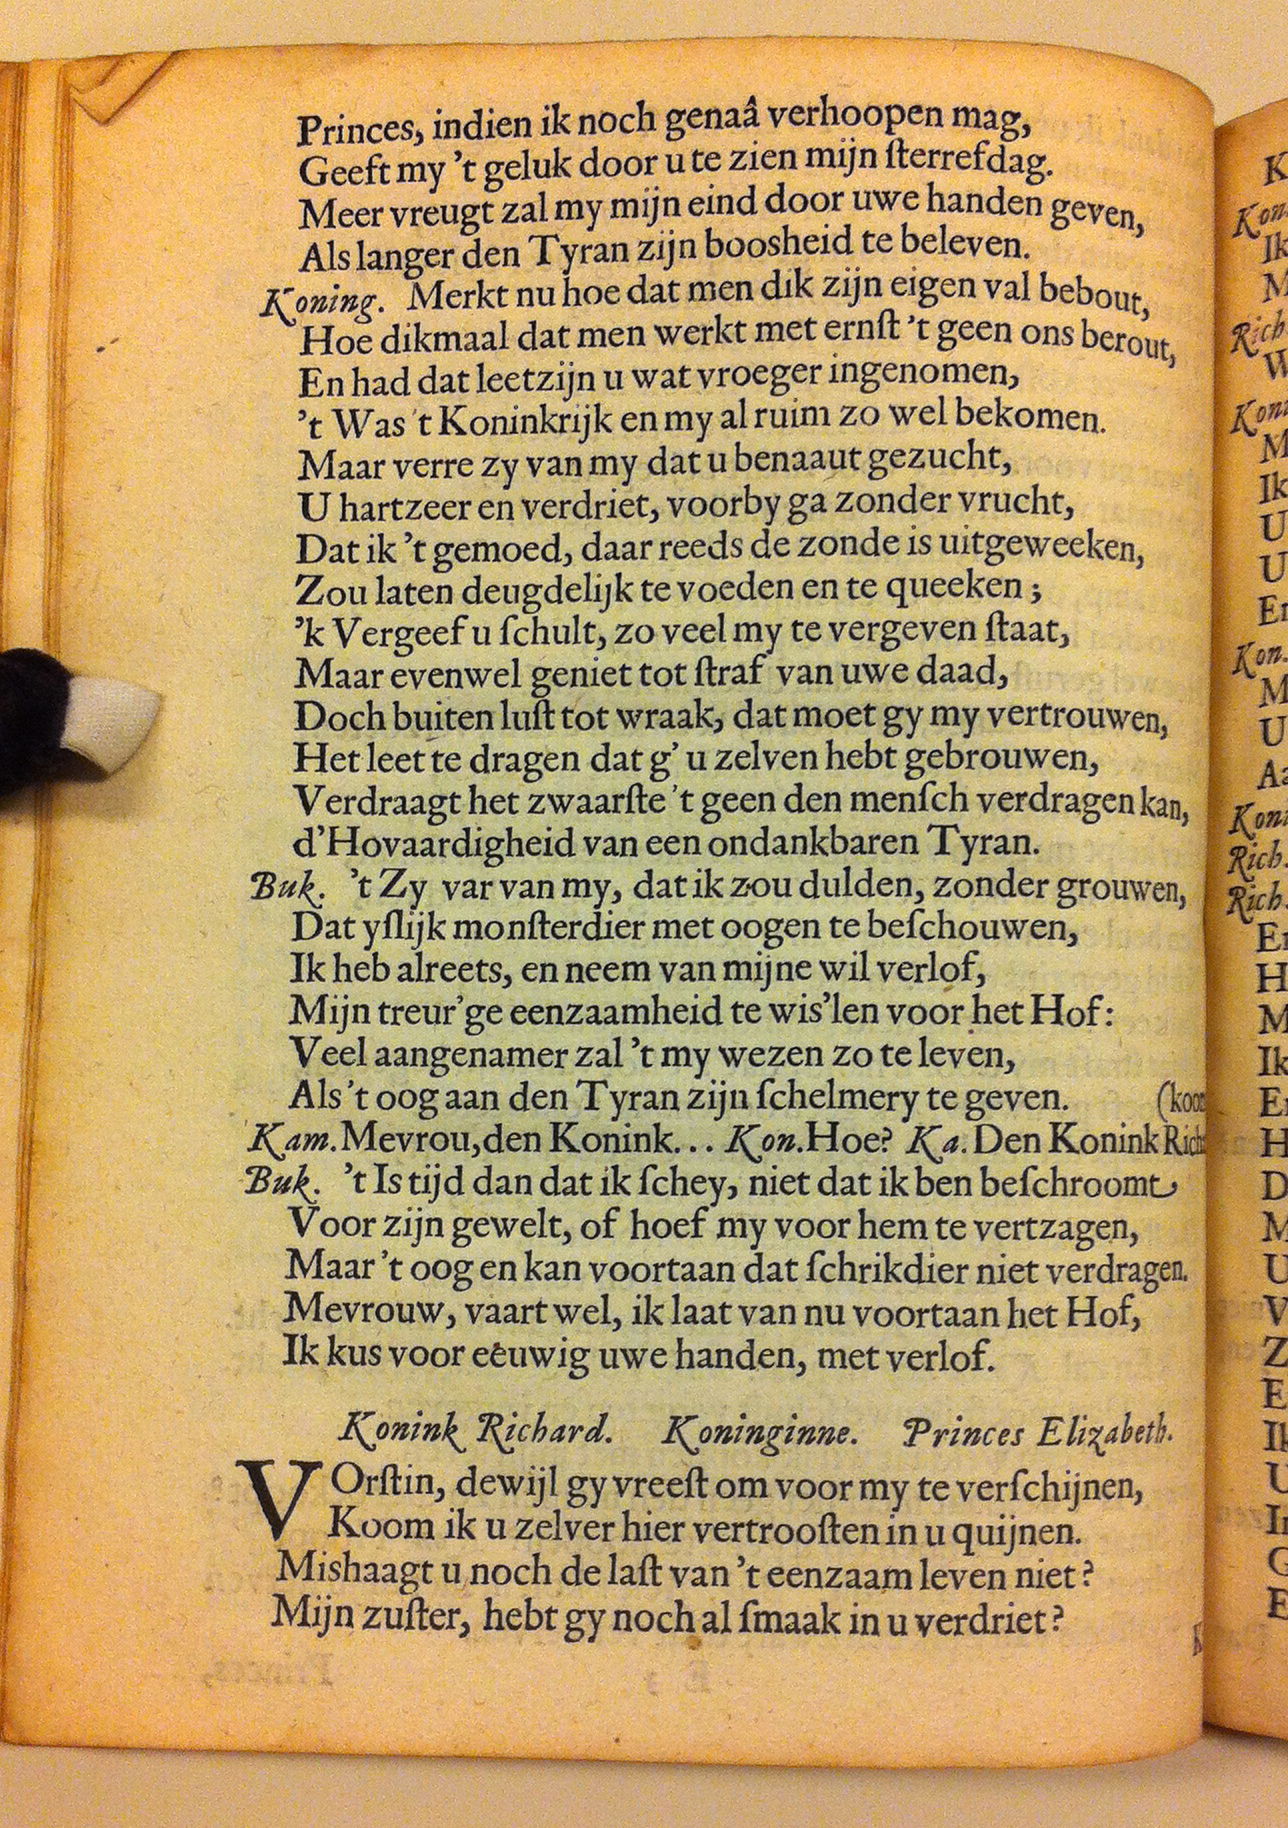 Princes, indien ik noch genaâ verhoopen mag,
Geeft my ’t geluk door u te zien mijn ſterrefdag.
Meer vreugt zal my mijn eind door uwe handen geven,
Als langer den Tyran zijn boosheid te beleven.
Koning. Merkt nu hoe dat men dik zijn eigen val bebout,
Hoe dikmaal dat men werkt met ernſt ’t geen ons berout,
En had dat leetzijn u wat vroeger ingenomen,
’t Was ’t Koninkrijk en my al ruim zo wel bekomen.
Maar verre zy van my dat u benaaut gezucht,
U hartzeer en verdriet, voorby ga zonder vrucht,
Dat ik ’t gemoed, daar reeds de zonde is uitgeweeken,
Zou laten deugdelijk te voeden en te queeken;
’k Vergeef u ſchult, zo veel my te vergeven ſtaat,
Maar evenwel geniet tot ſtraf van uwe daad,
Doch buiten luſt tot wraak, dat moet gy my vertrouwen,
Het leet te dragen dat g’ u zelven hebt gebrouwen,
Verdraagt het zwaarſte ’t geen den menſch verdragen kan,
d’Hovaardigheid van een ondankbaren Tyran.
Buk. ’t Zy var van my, dat ik zou dulden, zonder grouwen,
Dat yſlijk monſterdier met oogen te beſchouwen,
Ik heb alreets, en neem van mijne wil verlof,
Mijn treur’ge eenzaamheid te wis’len voor het Hof:
Veel aangenamer zal ’t my wezen zo te leven,
Als ’t oog aan den Tyran zijn ſchelmery te geven.
Kam. Mevrou, den Konink... Kon. Hoe? Ka. Den Konink
Buk. ’t Is tijd dan dat ik ſchey, niet dat ik ben beſchroomt
Voor zijn gewelt, of hoef my voor hem te vertzagen,
Maar ’t oog en kan voortaan dat ſchrikdier niet verdragen.
Mevrouw, vaart wel, ik laat van nu voortaan het Hof,
Ik kus voor eêuwig uwe handen, met verlof.
Konink Richard. Koninginne. Princes Elizabeth.
VOrſtin, dewijl gy vreeſt om voor my te verſchijnen,
Koom ik u zelver hier vertrooſten in u quijnen.
Mishaagt u noch de laſt van ’t eenzaam leven niet?
Mijn zuſter, hebt gy noch al ſmaak in u verdriet?